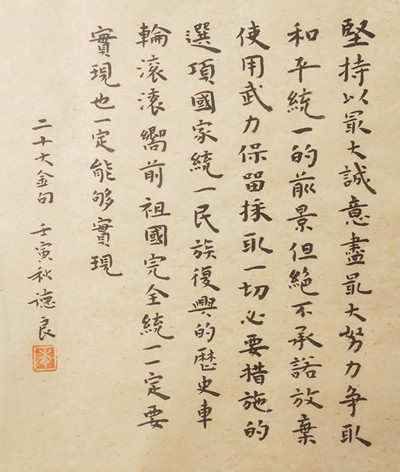 堅持以最大誠意盡最大努力争取
和平統一的前景但絕不承諾放棄
使用武力保留採取一切必要措施的
選項國家統一民族復興的歷史車
輪滾滾嚮前祖國完全統一一定要
實現也一定能够實現
二十大金句 壬寅秋德良